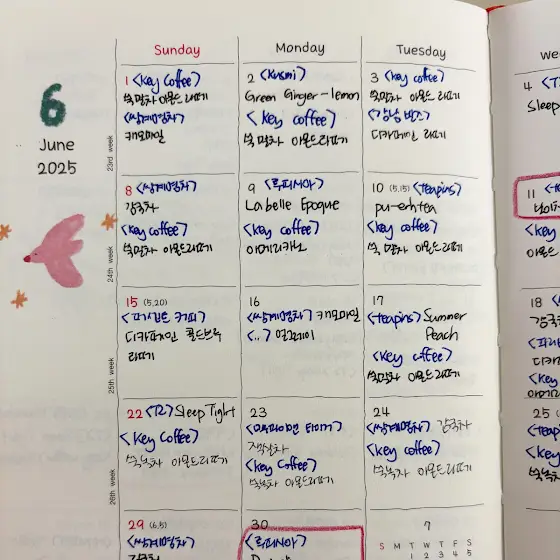 Sunday Monday Tuesday
6
June
2025
23rd week
1 <Key Coffee>
쑥말차 아몬드라떼
<쌍계명차>
캐모마일
2 <Kusmi>
Green Ginger-lemon
<Key coffee>
쑥말차 아몬드라떼
3 <Key coffee>
쑥말차 아몬드라떼
디카페인 라떼
4
Sleep
24th week
8 <쌍계명차>
감국차
<Key coffee>
쑥말차 아몬드라떼
9 <루피시아>
La belle Epoque
<Key coffee>
아메리카노
10 (5.15) <teapins>
pu-erh tea
<Key coffee>
쑥말차 아몬드라떼
11
<Key
아몬드
25th week
15 (5.20)
디카페인 콜드브루
라떼
16
<쌍계명차> 캐모마일
<..> 얼그레이
17
<teapins> Summer
Peach
<Key coffee>
쑥말차 아몬드라떼
18
감국차
디카페
<Key
26th week
22 <T2> Sleep Tight
<Key Coffee>
쑥녹차 아몬드라떼
23
<Key Coffee>
쑥녹차 아몬드라떼
24
<쌍계명차> 감국차
<Key coffee>
쑥녹차 아몬드라떼
25
<Key
29 (6.5)
<쌍계명차>
감국차
30
<루피시아>
7
S M T W T F S
1 2 3 4 5